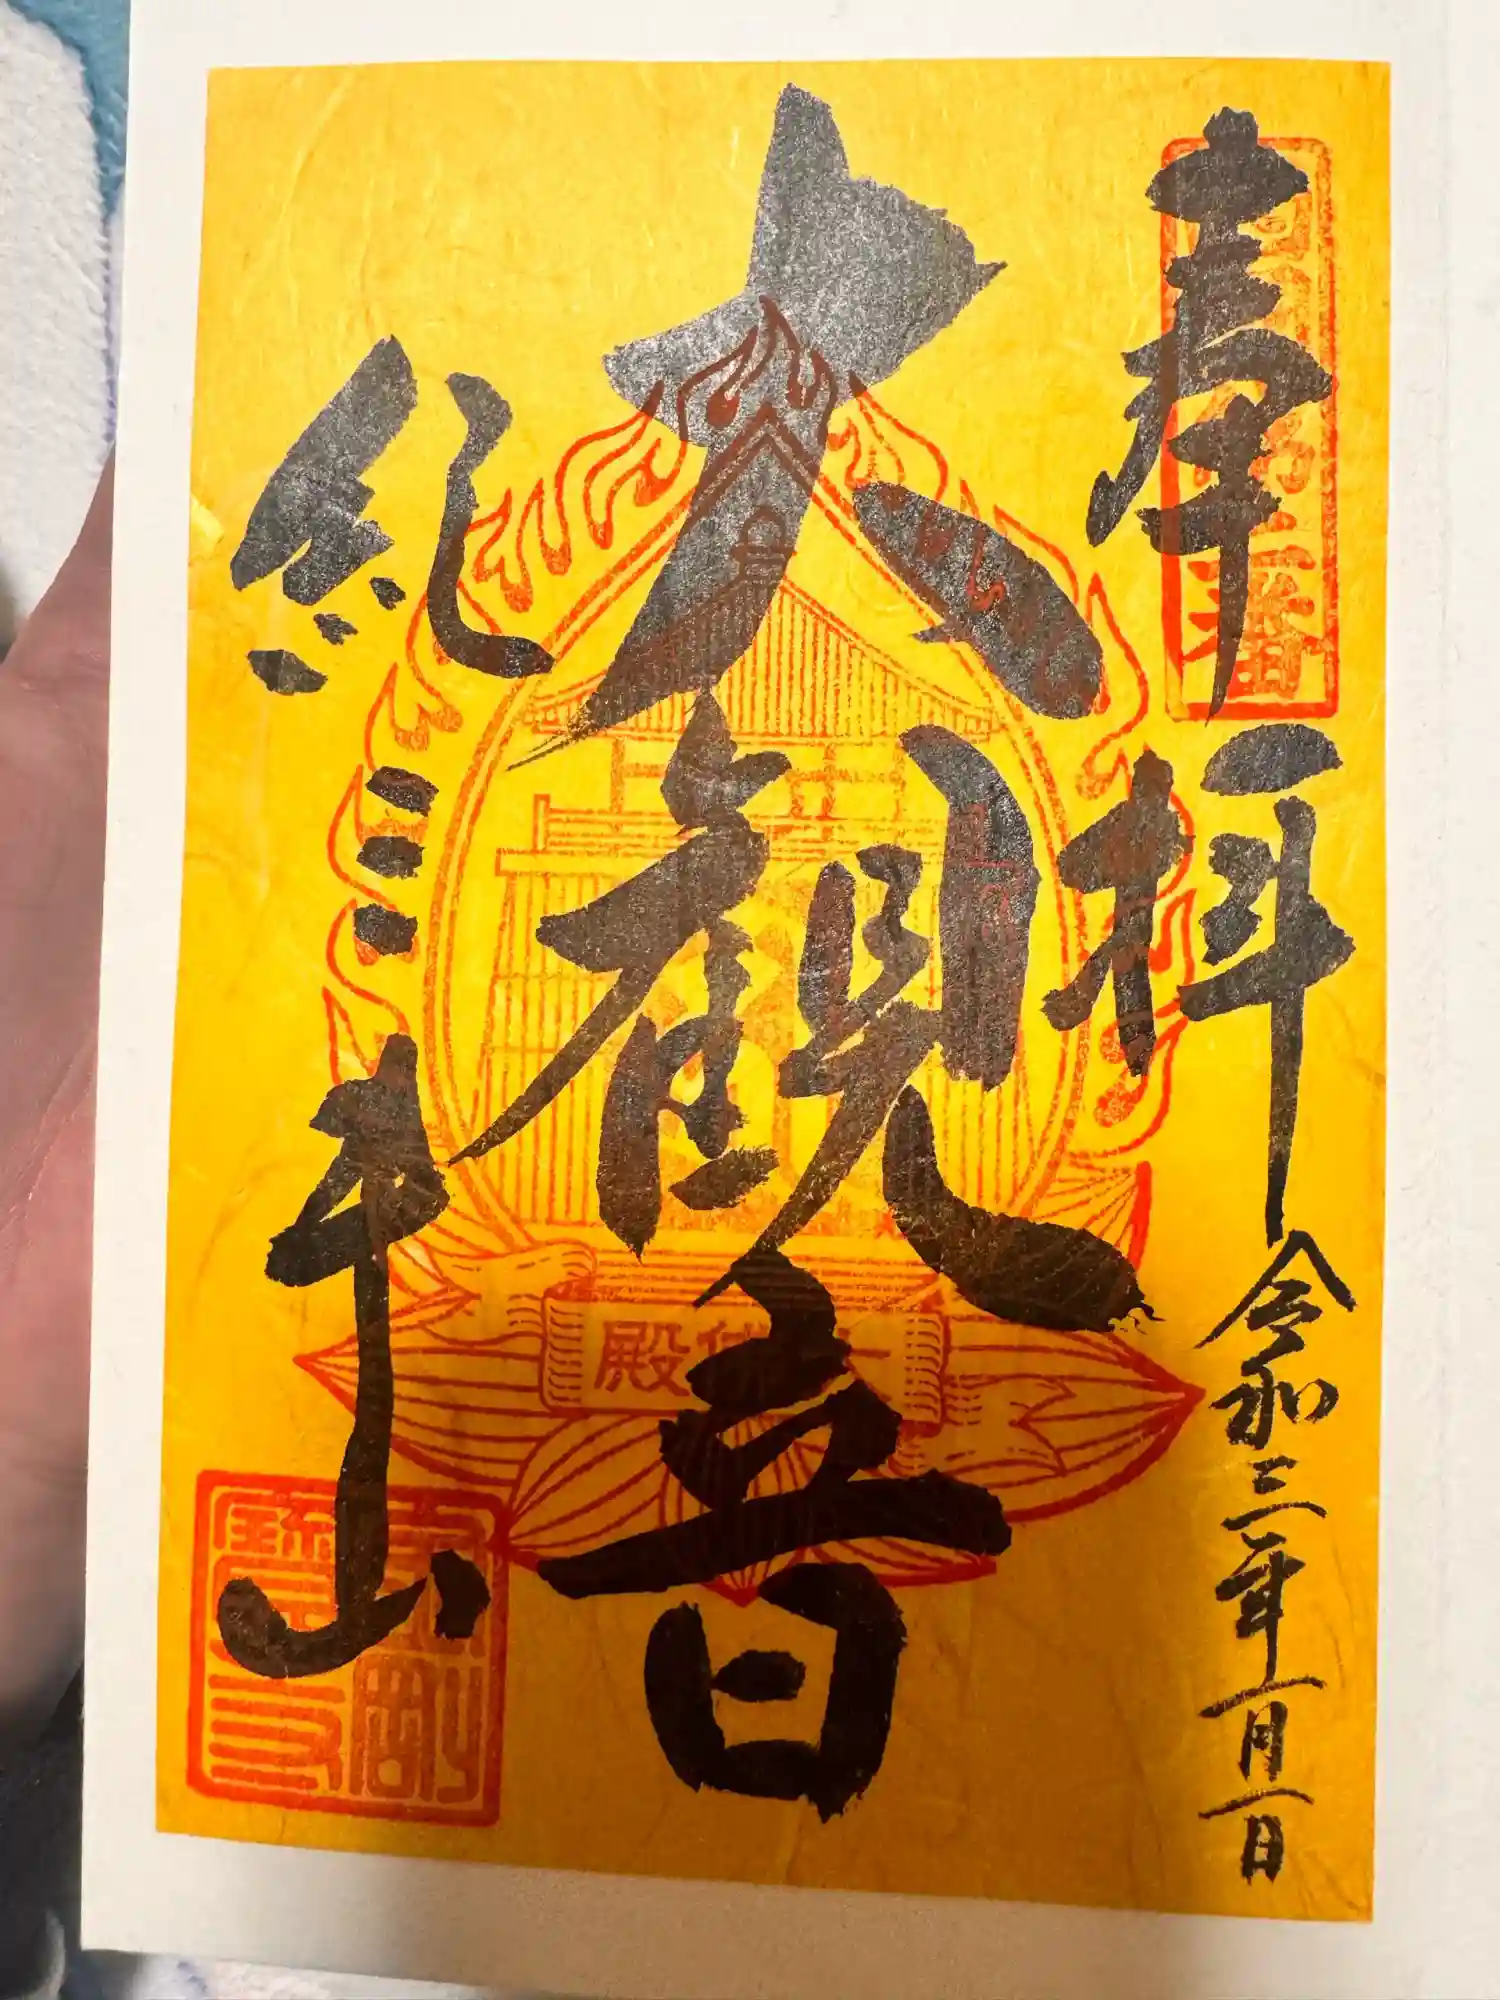 奉拝
令和三年一月一日
二番
大観音
佛殿
紀三井山